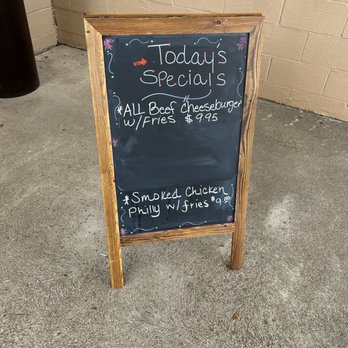 Today's
Special's
*ALL Beef Cheeseburger
w/Fries $9.95
*Smoked Chicken
Philly w/fries $9.00